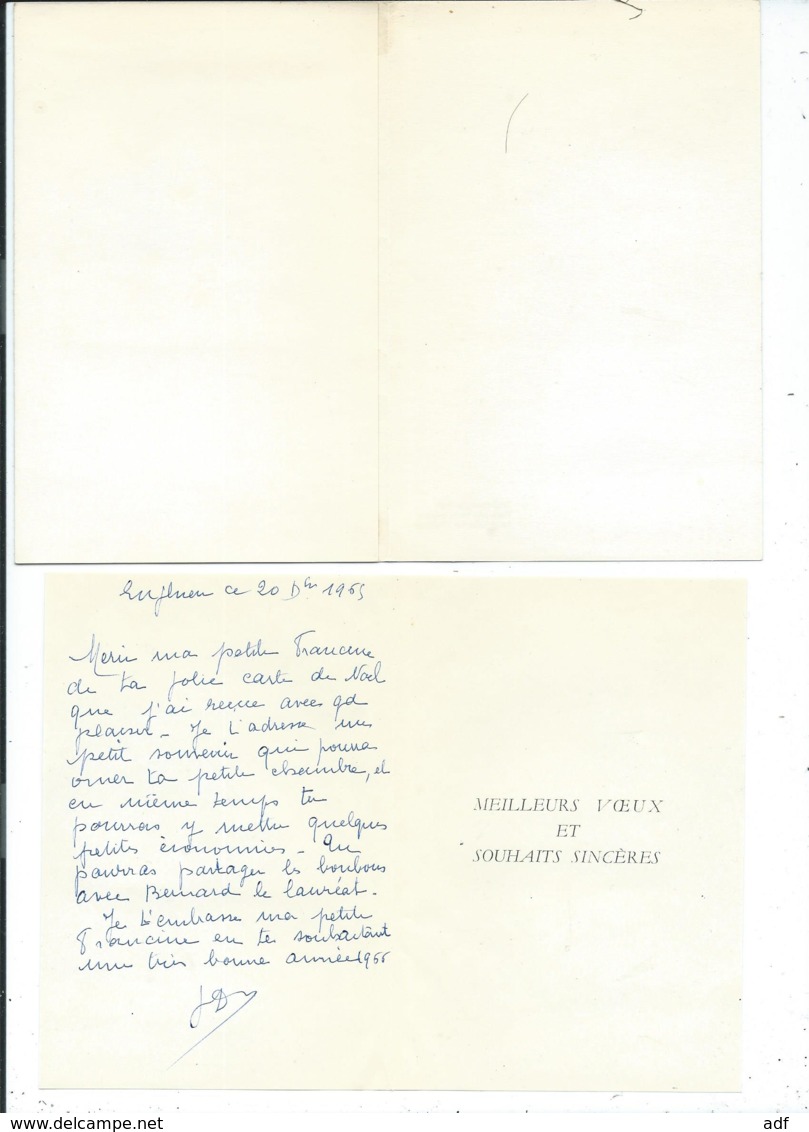 Enghien ce 20 Dbre 1965
Merci ma petite Francine
de ta jolie carte de Noël
que j'ai reçue avec gd
plaisir_ Je t'adresse un
petit souvenir qui pourra
orner ta petite chambre, et
en même temps tu
pourras y mettre quelques
petites économies_ Tu
pourras partager les bonbons
avec Bernard le lauréat.
Je t'embrasse ma petite
Francine en te souhaitant
une très bonne année 1966
MEILLEURS VŒUX
ET
SOUHAITS SINCÈRES
adf